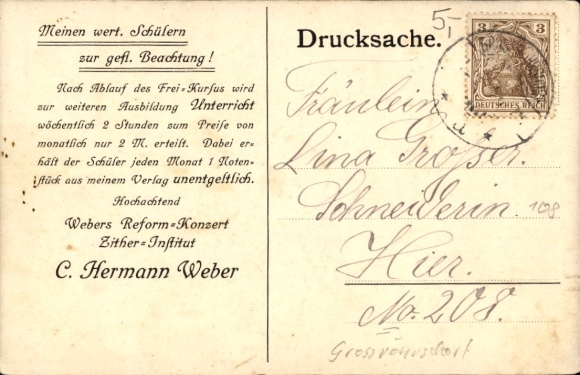 Meinen wert. Schülern
zur gefl. Beachtung!
Nach Ablauf des Frei-Kursus wird
zur weiteren Ausbildung Unterricht
wöchentlich 2 Stunden zum Preise von
monatlich nur 2 M. erteilt. Dabei er-
hält der Schüler jeden Monat 1 Noten-
stück aus meinem Verlag unentgeltlich.
Hochachtend
Webers Reform-Konzert
Zither-Institut
C. Hermann Weber
5,-
Drucksache.
3 3
DEUTSCHES REICH
Fräulein
Lina Großer.
Schneiderin. 108
Hier.
No. 208.
Grossröhrsdorf